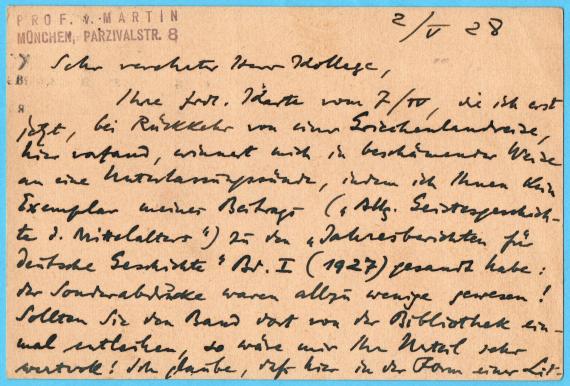 PROF. v. MARTIN
MÜNCHEN, PARZIVALSTR. 8
2/V 28
Sehr verehrter Herr Kollege,
Ihre frdl. Karte vom 7/IV, die ich erst
jetzt, bei Rückkehr von einer Griechenlandreise,
hier vorfand, erinnert mich in beschämender Weise
an eine Unterlassungssünde, indem ich Ihnen kein
Exemplar meines Beitrags („Allg. Geistesgeschich-
te d. Mittelalters“) zu den „Jahresberichten für
deutsche Geschichte“ Bd. I (1927) gesandt habe:
der Sonderabdrucke waren allzu wenige gewesen!
Sollten Sie den Band dort von der Bibliothek ein-
mal entleihen, so wäre mir Ihr Urteil sehr
wertvoll! Ich glaube, daß hier in der Form einer Lit-